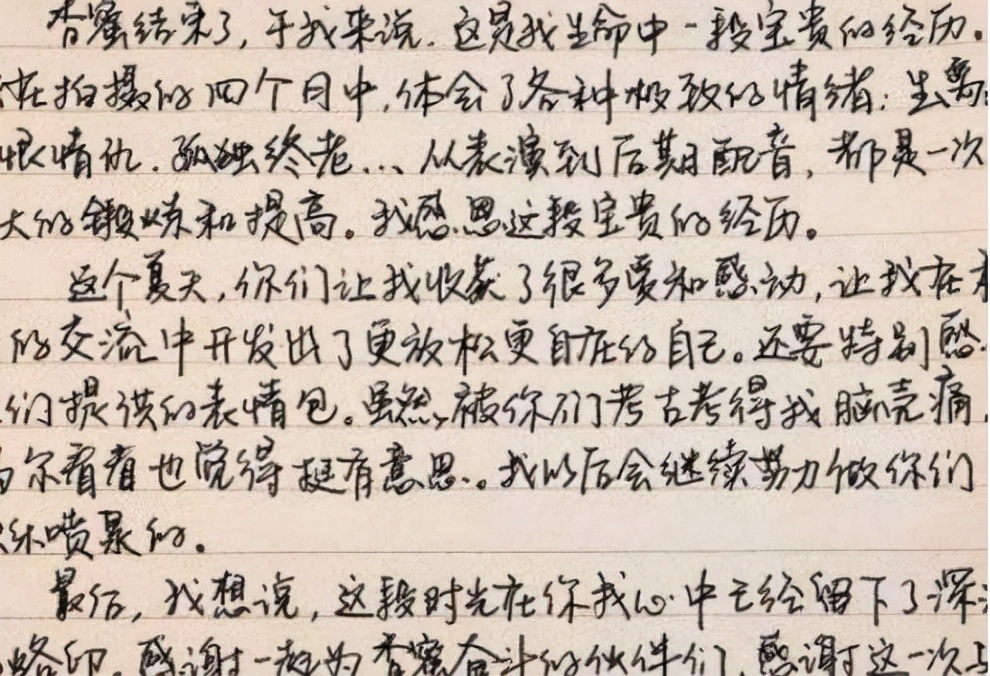 香蜜结束了,于我来说.这是我生命中一段宝贵的经历。
在拍摄的四个月中,体会了各种极致的情绪:生离
恨情仇.孤独终老...从表演到后期配音,都是一次
大的锻炼和提高。我感恩这段宝贵的经历。
这个夏天,你们让我收获了很多爱和感动,让我在
的交流中开发出了更放松更自在的自己。还要特别感
们提供的表情包。虽然,被你们考古考得我脑壳痛,
尔看看也觉得挺有意思.。我以后会继续努力做你们
喷泉的。
最后,我想说,这段时光在你我心中已经留下了深
烙印.感谢一起为香蜜奋斗的伙伴们,感谢这一次